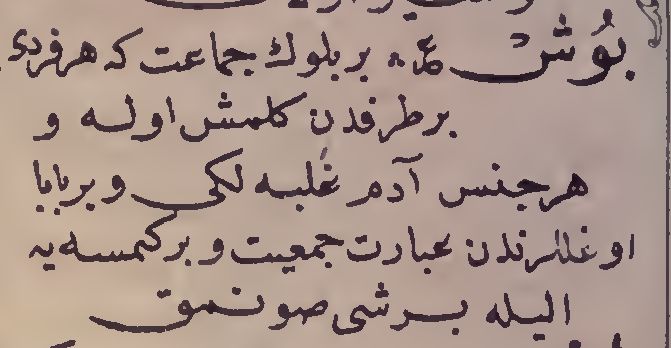 بُوش ع ٨ بر بلوك جماعت كه هر فردى
بر طرفدن كلمش اوله و
هر جنس آدم غلبه لكى و بر بابا
اوغللرندن عبارت جمعيت و بر كمسه يه
اليله بر شى صونمق